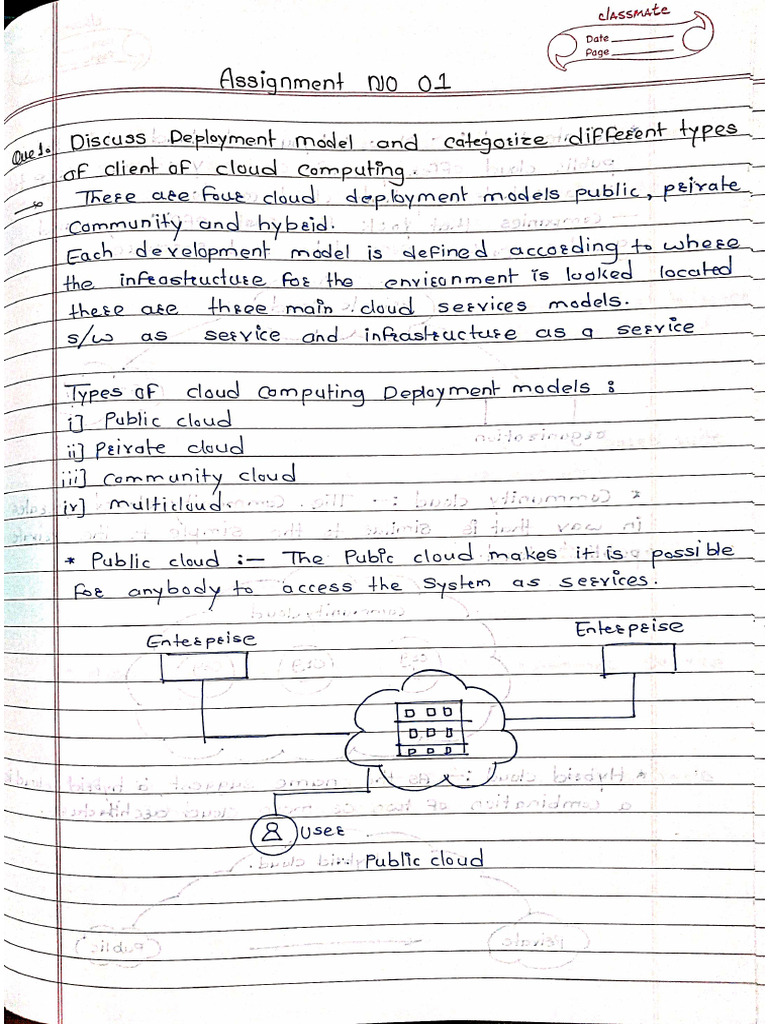 classmate
Date
Page
Assignment NO 01
Que1. Discuss Deployment model and categorize different types
of client of cloud computing.
→ There are four cloud deployment models public, private
community and hybrid.
Each development model is defined according to where
the infrastructure for the environment is looked located
there are three main cloud services models.
s/w as service and infrastructure as a service
Types of cloud computing Deployment models :
i] Public cloud
ii] Private cloud
iii] community cloud
iv] multicloud.
* Public cloud :- The Pubic cloud makes it is possible
for anybody to access the system as services.
Enterprise
Enterprise
User
Public cloud